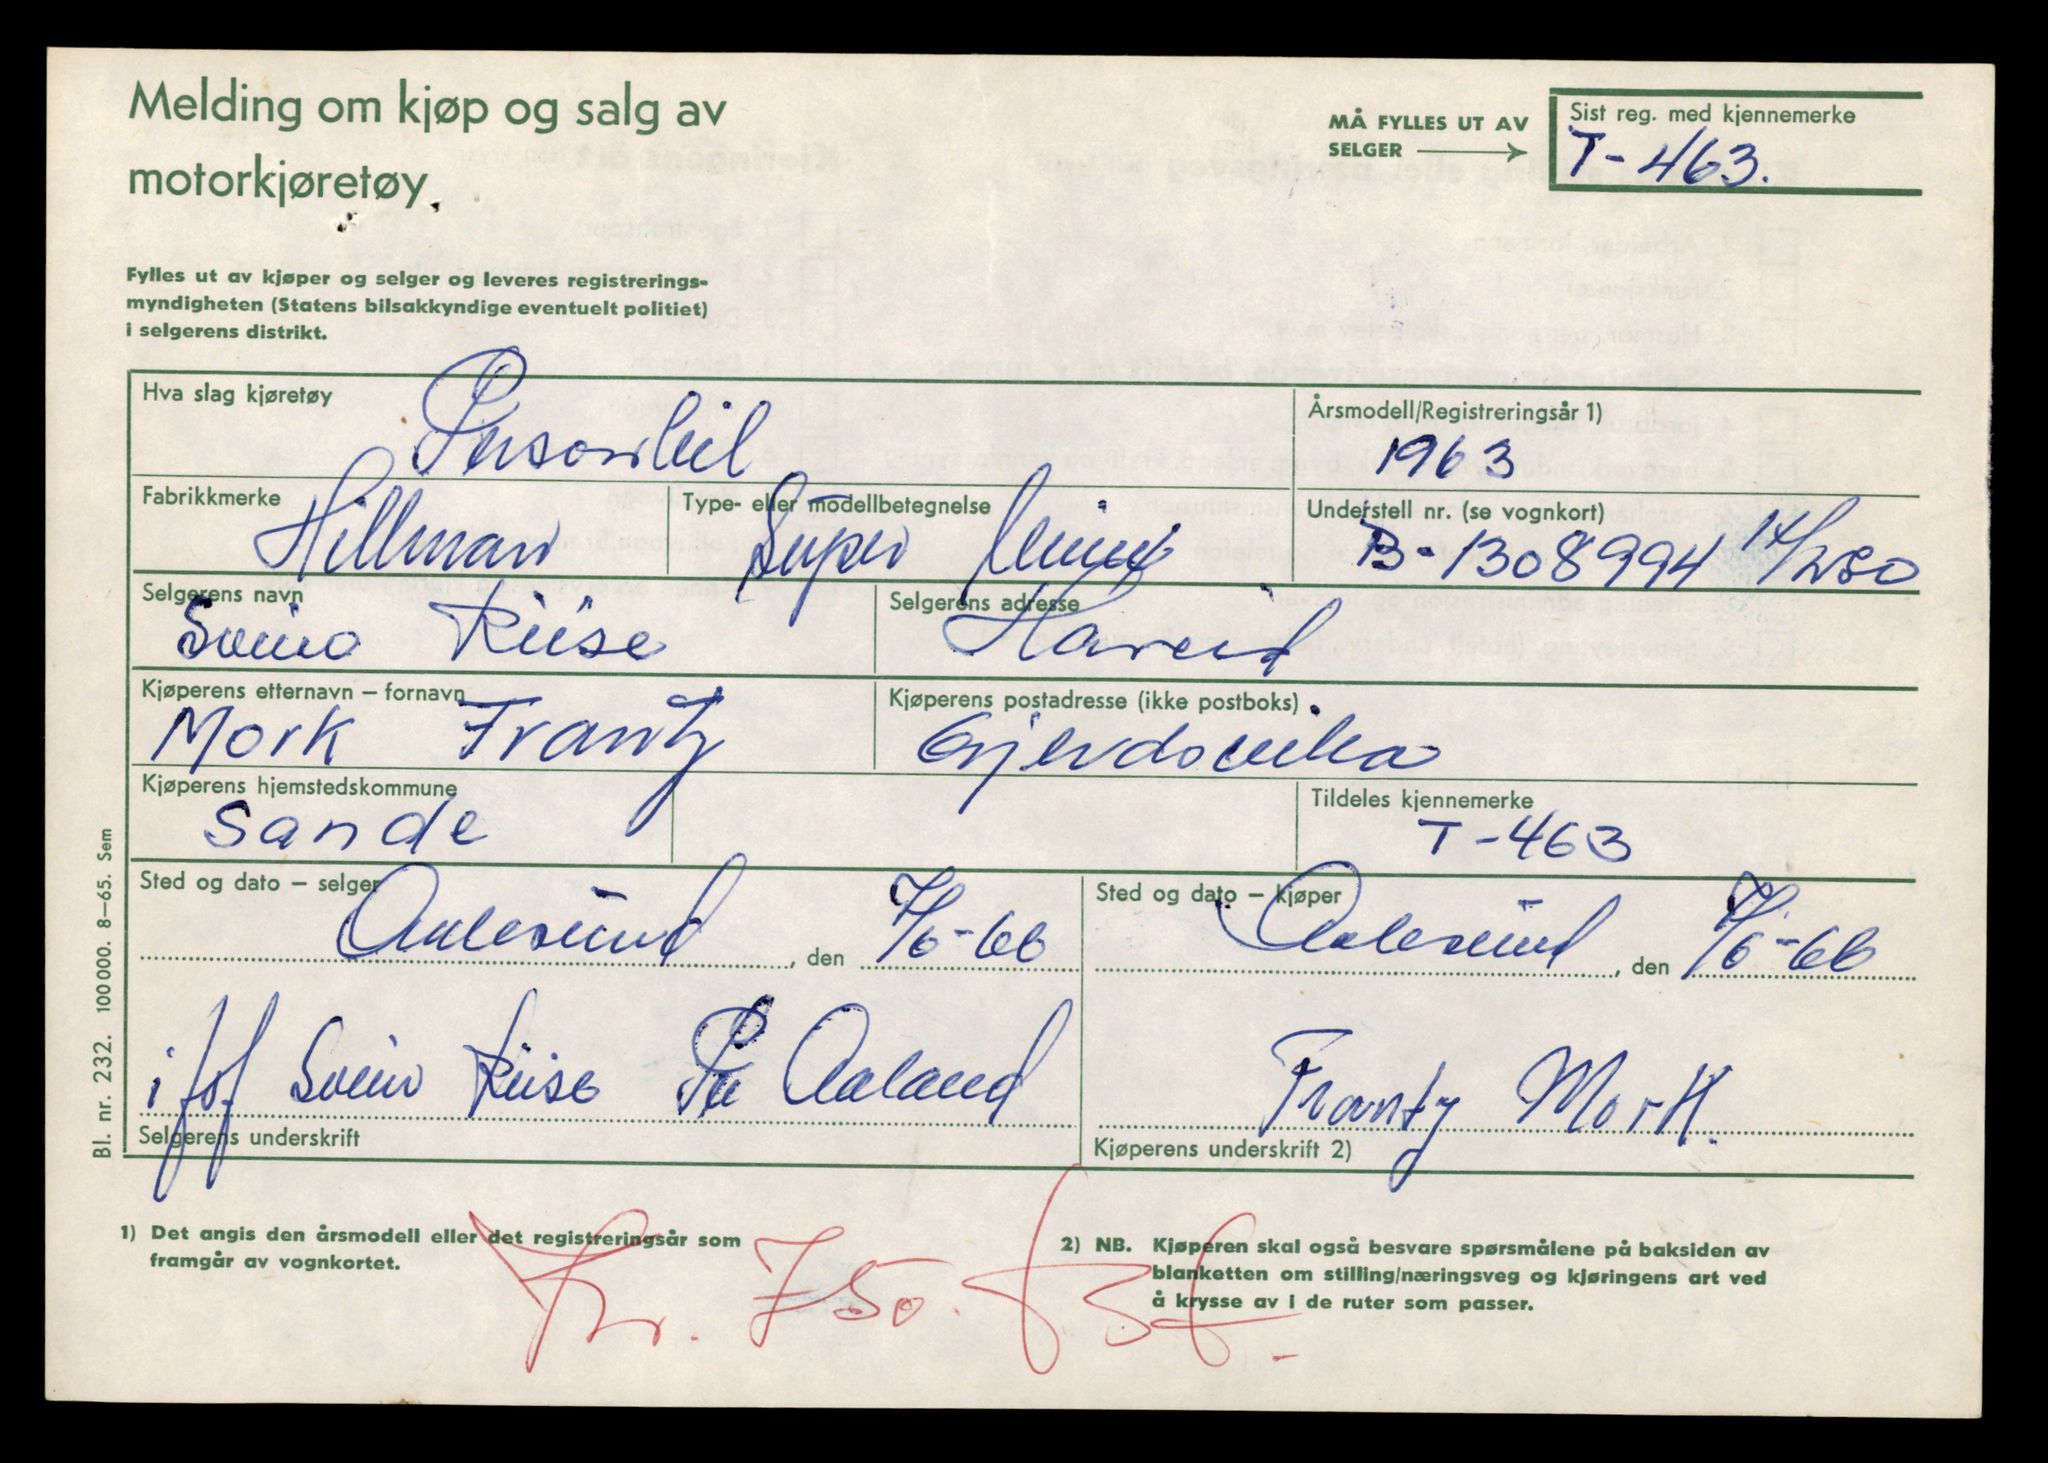 Melding om kjøp og salg av
motorkjøretøy
MÅ FYLLES UT AV
SELGER
Sist reg. med kjennemerke
T-463.
Fylles ut av kjøper og selger og leveres registrerings-
myndigheten (Statens bilsakkyndige eventuelt politiet)
i selgerens distrikt.
Hva slag kjøretøy
Personbil
Årsmodell/Registreringsår 1)
1963
Fabrikkmerke
Hillman
Type- eller modellbetegnelse
Super Minx
Understell nr. (se vognkort)
B-1308994
Selgerens navn
Svein Riise
Selgerens adresse
Hareid
Kjøperens etternavn – fornavn
Mork Frantz
Kjøperens postadresse (ikke postboks)
Gjerdsvika
Kjøperens hjemstedskommune
Sande
Tildeles kjennemerke
T-463
Sted og dato – selger
Aalesund, den 7/6-66
Sted og dato – kjøper
Aalesund, den 7/6-66
i fof Svein Riise Per Aaland
Selgerens underskrift
Frantz Mork.
Kjøperens underskrift 2)
1) Det angis den årsmodell eller det registreringsår som
framgår av vognkortet.
2) NB. Kjøperen skal også besvare spørsmålene på baksiden av
blanketten om stilling/næringsveg og kjøringens art ved
å krysse av i de ruter som passer.
Kr. 750.
Bl. nr. 232. 100 000. 8–65. Sem